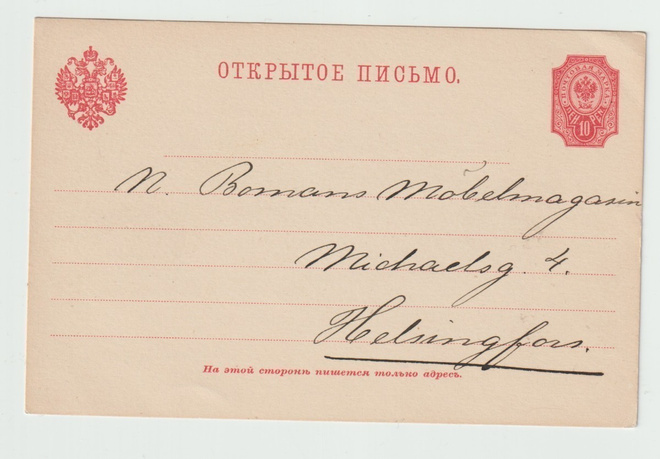 ОТКРЫТОЕ ПИСЬМО.
ПОЧТОВАЯ МАРКА
10
N. Bomans Möbelmagasin
Michaelsg. 4.
Helsingfors.
На этой сторонѣ пишется только адресъ.